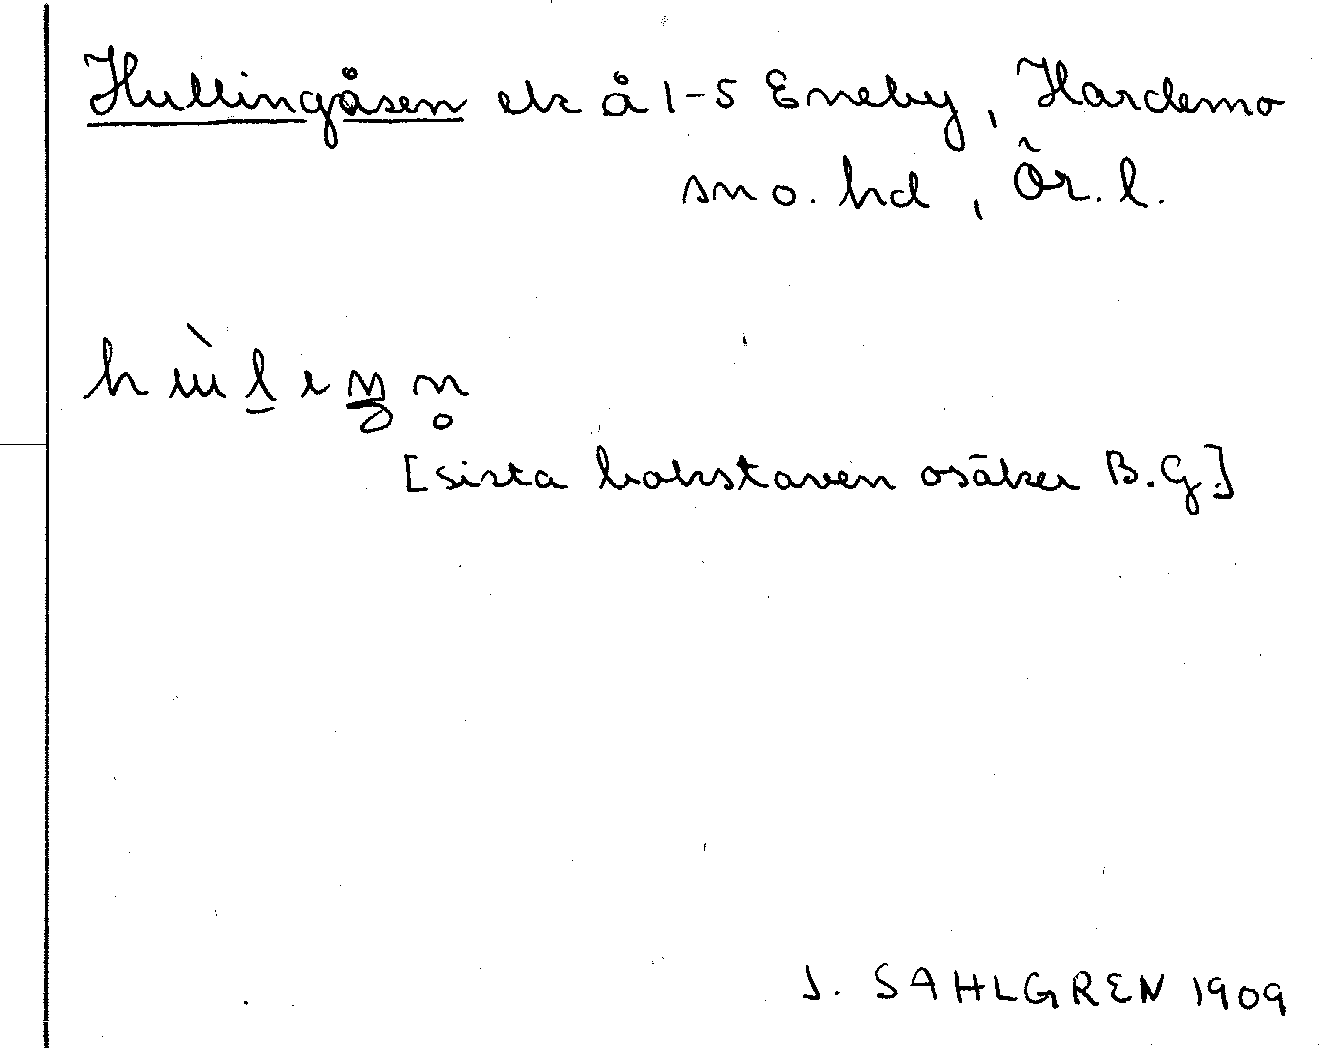 Hullingåsen elr å 1-5 Eneby, Hardemo
sn o. hd, Ör. l.
[sista bokstaven osäker B.G.]
J. SAHLGREN 1909